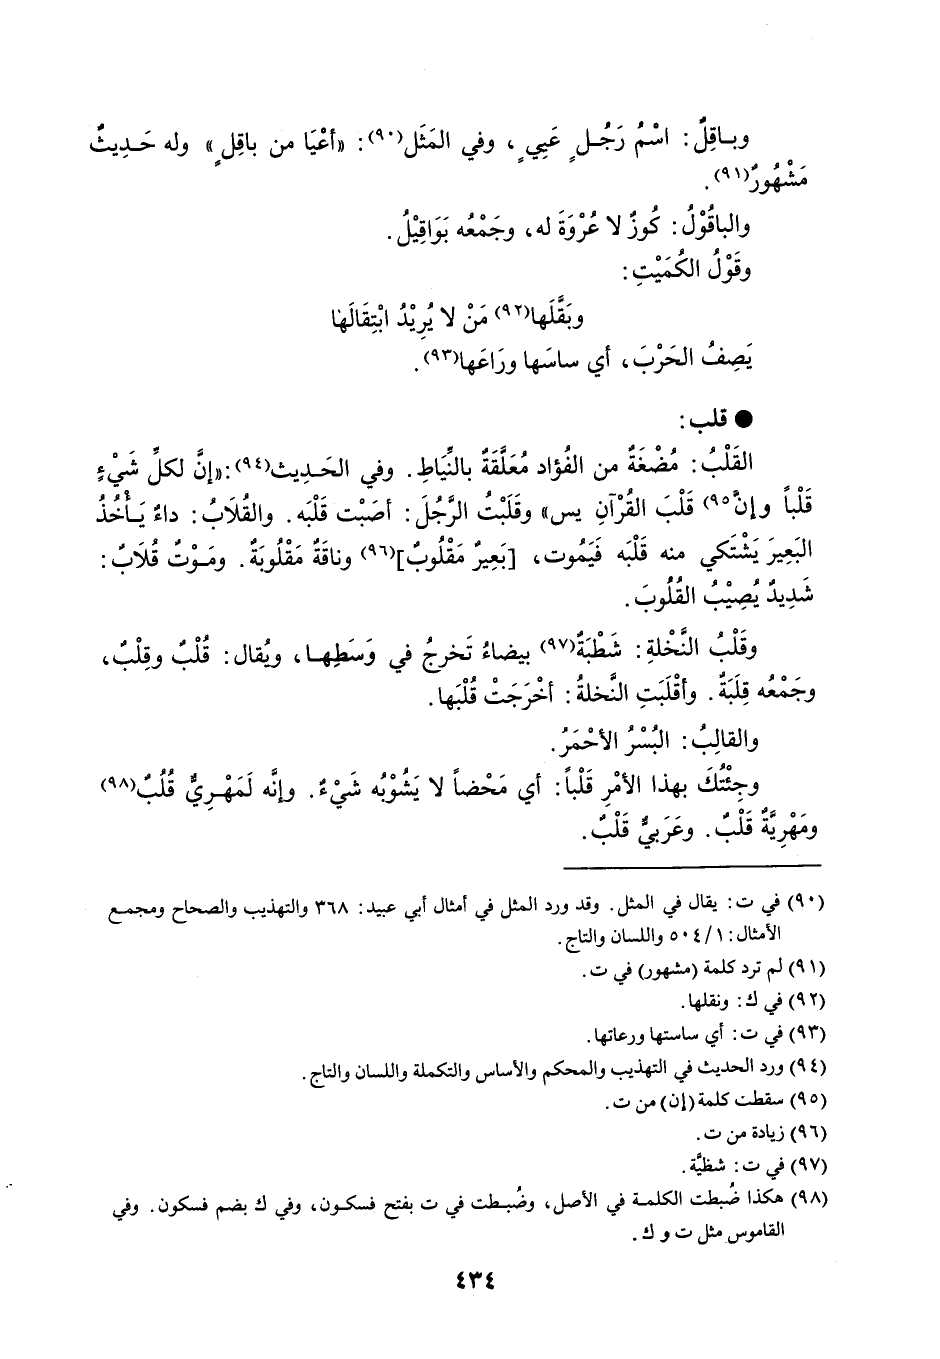 وبـاقِلٌ: اسْمُ رَجُـلٍ عَيِيٍ، وفي المَثَل(٩٠): «أعْيَا من باقِلٍ» وله حَـدِيثٌ
مَشْهُورٌ(٩١).
والباقُوْلُ: كُوزٌ لا عُرْوَةَ له، وجَمْعُه بَوَاقِيْلُ.
وقَوْلُ الكُمَيْتِ:
وبَقَّلَها(٩٢) مَنْ لا يُرِيْدُ ابْتِقَالَها
يَصِفُ الحَرْبَ، أي ساسَها ورَاعَها(٩٣).
● قلب:
القَلْبُ: مُضْغَةٌ من الفُؤاد مُعَلَّقَةٌ بالنِّيَاطِ. وفي الحَـدِيث(٩٤): «إنَّ لكلِّ شَيْءٍ
قَلْباً وإنَّ(٩٥) قَلْبَ القُرْآنِ يس» وقَلَبْتُ الرَّجُلَ: أصَبْت قَلْبَه. والقُلَابُ: داءٌ يَـأْخُذُ
البَعِيرَ يَشْتَكي منه قَلْبَه فَيَموت، [بَعِيرٌ مَقْلُوبٌ](٩٦) وناقَةٌ مَقْلُوبَةٌ. ومَـوْتٌ قُلَابٌ:
شَدِيدٌ يُصِيْبُ القُلُوبَ.
وقَلْبُ النَّخْلةِ: شَطْبَةٌ(٩٧) بيضاءُ تَخرجُ في وَسَطِهـا، ويُقال: قُلْبٌ وقِلْبٌ،
وجَمْعُه قِلَبَةٌ. وأقْلَبَتِ النَّخلةُ: أخْرَجَتْ قُلْبَها.
والقالِبُ: البُسْرُ الأحْمَرُ.
وجِئْتُكَ بهذا الأمْرِ قَلْباً: أي مَحْضاً لا يَشُوْبُه شَيْءٌ. وإنَّه لَمَهْـرِيٌّ قُلُبٌ(٩٨)
ومَهْرِيَّةٌ قَلْبٌ. وعَرَبيٌّ قَلْبٌ.
(٩٠) في ت: يقال في المثل. وقد ورد المثل في أمثال أبي عبيد: ٣٦٨ والتهذيب والصحاح ومجمـع
الأمثال: ٥٠٤/١ واللسان والتاج.
(٩١) لم ترد كلمة (مشهور) في ت.
(٩٢) في ك: ونقلها.
(٩٣) في ت: أي ساستها ورعاتها.
(٩٤) ورد الحديث في التهذيب والمحكم والأساس والتكملة واللسان والتاج.
(٩٥) سقطت كلمة (إن) من ت.
(٩٦) زيادة من ت.
(٩٧) في ت: شظيَّة.
(٩٨) هكذا ضُبطت الكلمـة في الأصل، وضُبـطت في ت بفتح فسكـون، وفي ك بضم فسكون. وفي
القاموس مثل ت و ك.
٤٣٤